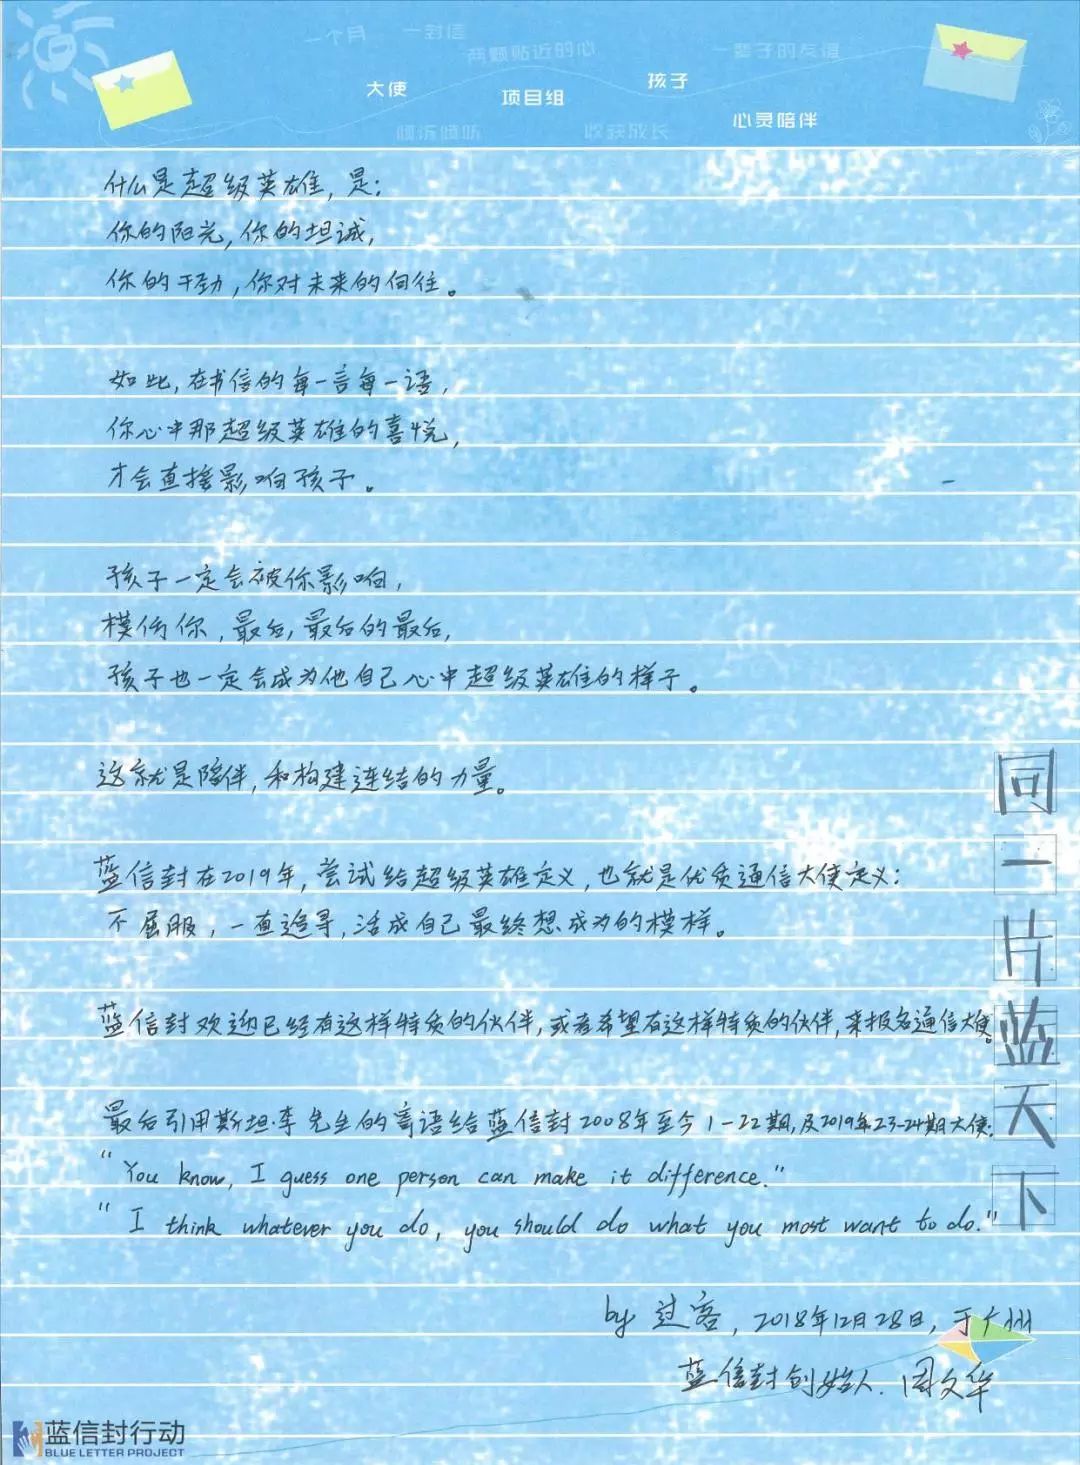 一个月 一封信
两颗贴近的心 一辈子的友谊
大使 项目组 孩子
心灵陪伴
倾诉倾听 收获成长
什么是超级英雄，是：
你的阳光，你的坦诚，
你的干劲，你对未来的向往。
如此，在书信的每一言每一语，
你心中那超级英雄的喜悦，
才会直接影响孩子。
孩子一定会被你影响，
模仿你，最后，最后的最后，
孩子也一定会成为他自己心中超级英雄的样子。
这就是陪伴，和构建连结的力量。
蓝信封在2019年，尝试给超级英雄定义，也就是优质通信大使定义：
不屈服，一直追寻，活成自己最终想成为的模样。
蓝信封欢迎已经有这样特质的伙伴，或者希望有这样特质的伙伴，来报名通信大使。
最后引用斯坦·李先生的寄语给蓝信封2008年至今1-22期，及2019年23-24期大使：
"You know, I guess one person can make it difference."
"I think whatever you do, you should do what you most want to do."
by 过客，2018年12月28日，于广州
蓝信封创始人 周文华
同一片蓝天下
蓝信封行动
BLUE LETTER PROJECT